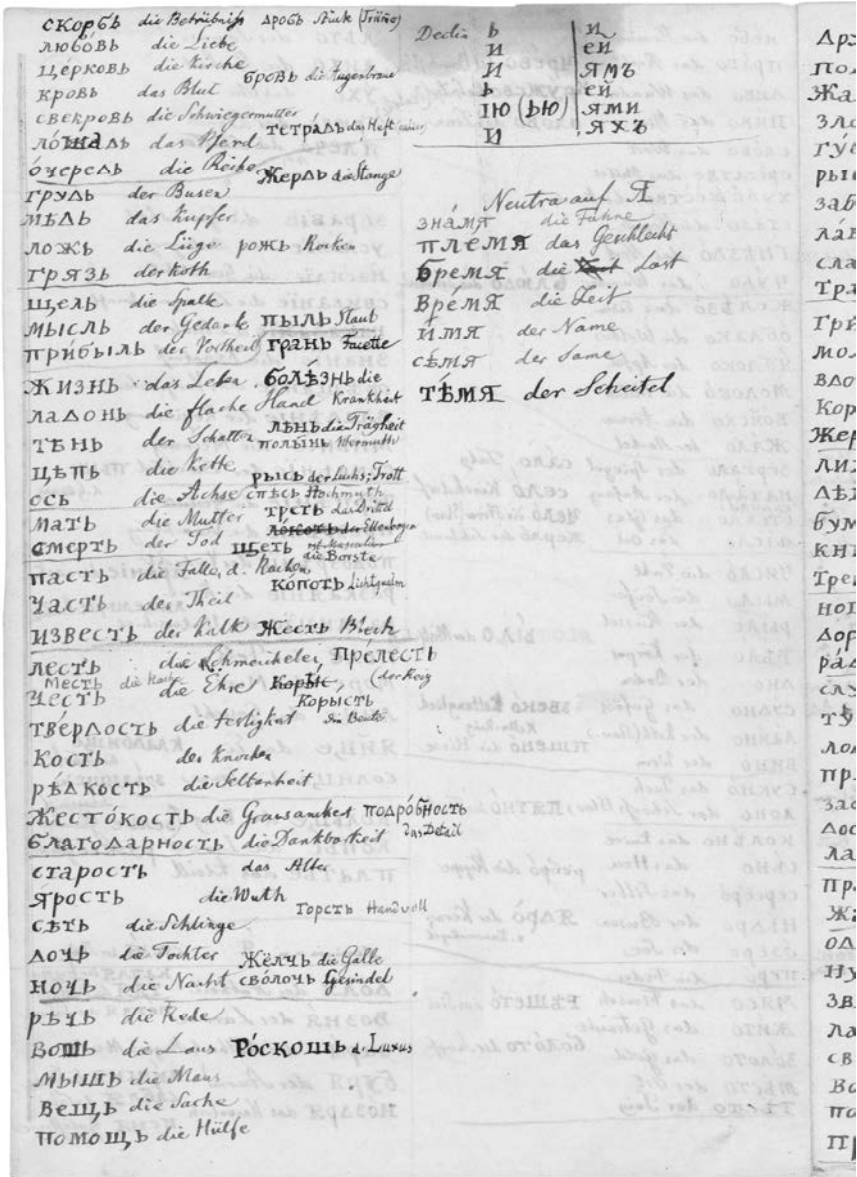 скорбь die Betrübniß дробь Stück
любо́вь die Liebe
це́рковь die Kirche бровь die Augenbraue
кровь das Blut
свекровь die Schwiegermutter
ло́шадь das Pferd тетра́дь das Heft
о́чередь die Reihe жердь die Stange
грудь der Busen
мѣдь das Kupfer
ложь die Lüge рожь Rocken
грязь der Koth
щель die Spalte
мысль der Gedanke пыль Staub
при́быль der Vortheil грань Facette
жизнь das Leben болѣзнь die Krankheit
ладонь die flache Hand лѣнь die Trägheit
тѣнь der Schatten полы́нь Wermuth
цѣпь die Kette рысь der Luchs, Trott
ось die Achse спѣсь Hochmuth
мать die Mutter треть das Drittel
смерть der Tod щеть die Borste
пасть die Falle, d. Rachen ко́поть
часть der Theil
известь der Kalk жесть Blech
лесть die Schmeichelei, пре́лесть (der Reiz
месть die Rache
честь die Ehre Корысть die Beute
твёрдость die Festigkeit
кость der Knochen
рѣдкость die Seltenheit
жесто́кость die Grausamkeit подро́бность das Detail
благодарность die Dankbarkeit
старость das Alter
я́рость die Wuth
горсть Handvoll
сѣть die Schlinge
дочь die Tochter жёлчь die Galle
ночь die Nacht сво́лочь Gesindel
рѣчь die Rede
вошь die Laus Ро́скошь d. Luxus
мышь die Maus
вещь die Sache
помощь die Hülfe
Declin ь и
и ей
и ямъ
ь ей
ію (ью) ями
и яхъ
Neutra auf Я
зна́мя die Fahne
племя das Geschlecht
бремя die Last
вре́мя die Zeit
и́мя der Name
сѣмя der Same
тѣмя der Scheitel